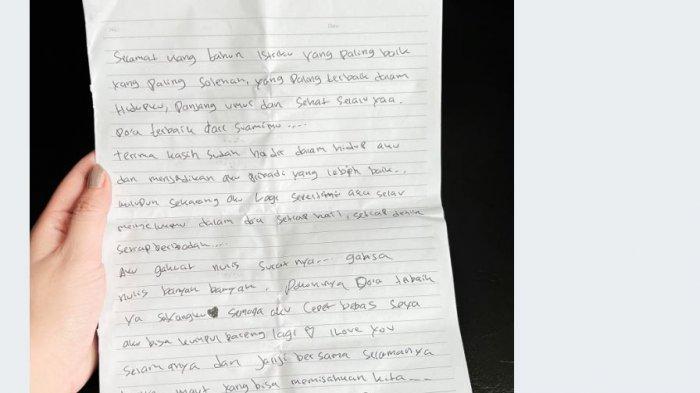 Selamat ulang tahun Istriku yang paling baik
yang paling Solehah, yang paling terbaik dalam
Hidupku, Panjang umur dan Sehat Selalu yaa.
Doa terbaik dari Suamimu....
terima kasih sudah hadir dalam hidup aku
dan menjadikan aku pribadi yang lebih baik..
walupun sekarang aku lagi aku selalu
memelukmu dalam doa setiap hari, setiap
setiap beribadah....
Aku gakuat nulis suratnya.... gabisa
nulis banyak banyak. Pokoknya Doa tebaik
ya sayangku semoga aku cepet bebas saya
aku bisa kumpul bareng lagi ♡ I Love You
selamanya dan janji bersama selamanya
maut yang bisa memisahkan kita....